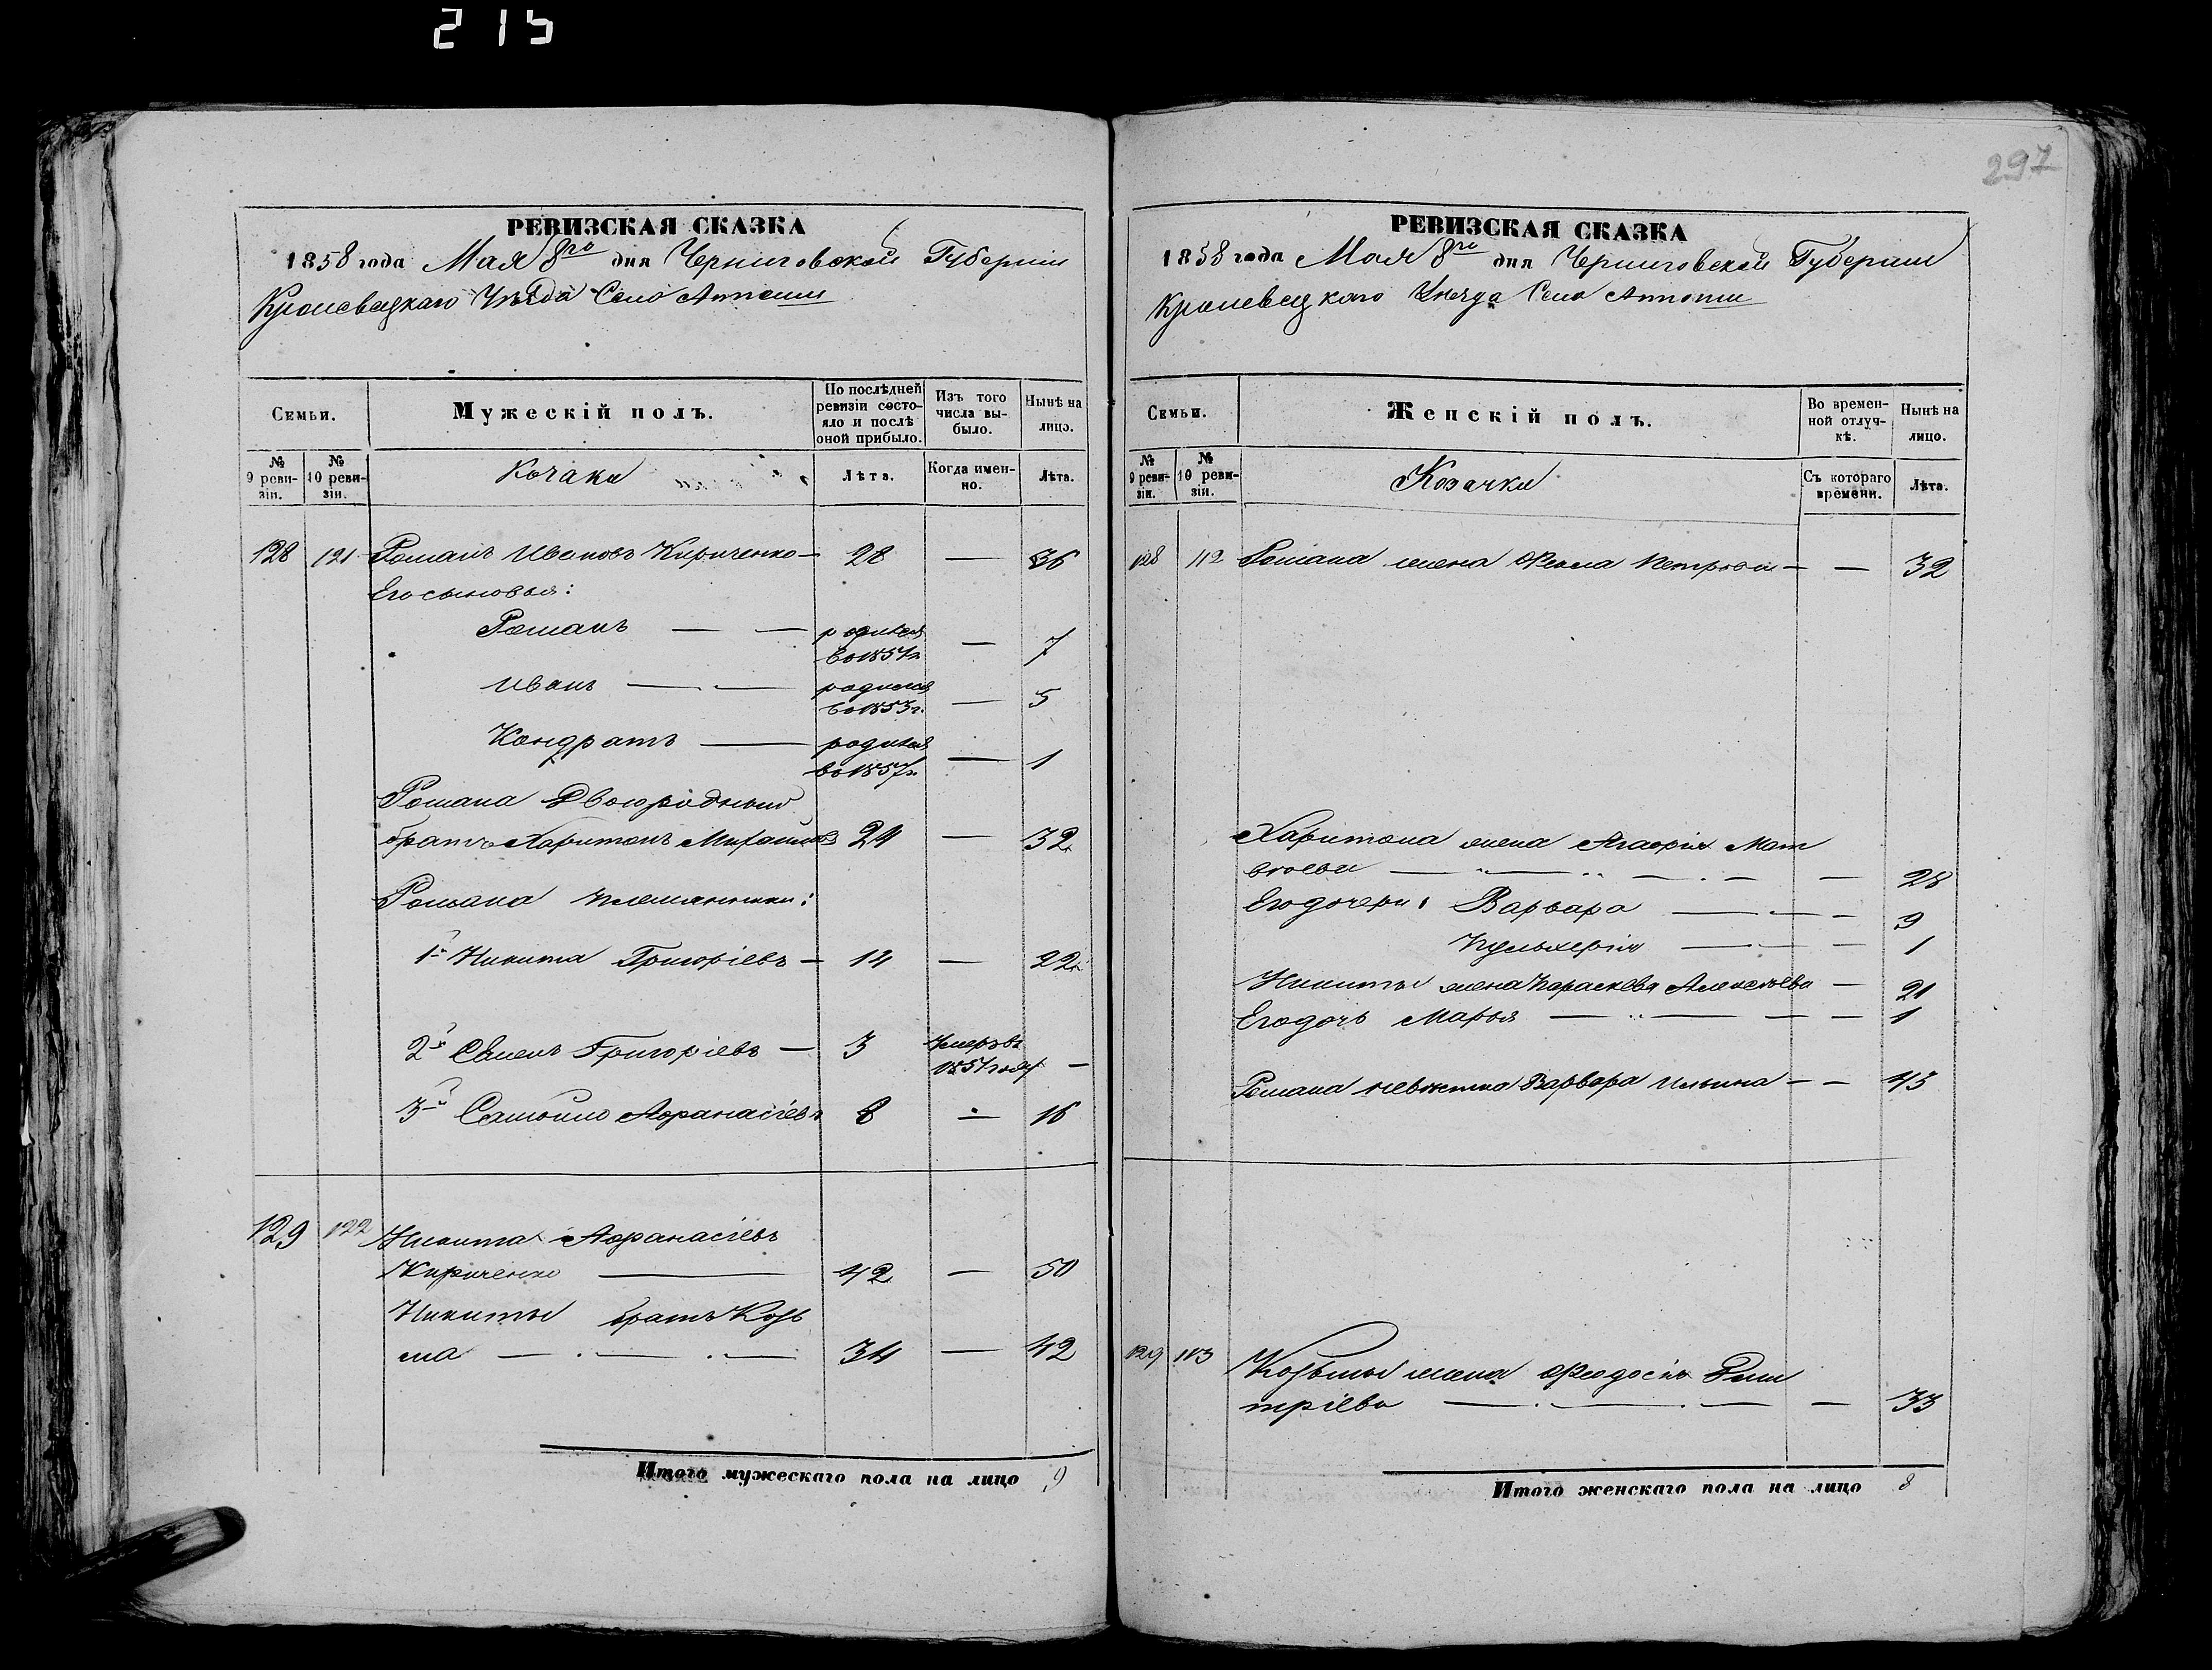 215
297
РЕВИЗСКАЯ СКАЗКА
1858 года Мая 8го дня Черниговской Губерніи
Кролевецкаго Уѣзда Село
Семьи. Мужескій полъ. По послѣдней ревизіи состояло и послѣ оной прибыло. Изъ того числа выбыло. Нынѣ на лицо.
№ 9 ревизіи. № 10 ревизіи. Козаки Лѣта. Когда именно. Лѣта.
128 121 Романъ Ивановъ Кириченко — 28 — 36
Его сыновья:
Романъ — — родился во 1851г. — 7
Иванъ — — родился во 1853г. — 5
Кондратъ — родился во 1857г. — 1
Романа Двоюродный
братъ Харитонъ Михайловъ 24 — 32
Романа племянники:
1й Никита Григоріевъ — 14 — 22
2й Семенъ Григоріевъ — 3 Умеръ въ 1851 году —
3й Самойло Афранасіевъ 8 — 16
129 122 Никита Афранасіевъ
Кириченко — 42 — 50
Никиты братъ Козь
ма — . — . — 34 — 42
Итого мужескаго пола на лицо 9
РЕВИЗСКАЯ СКАЗКА
1858 года Мая 8го дня Черниговской Губерніи
Кролевецкаго Уѣзда Село
Семьи. Женскій полъ. Во временной отлучкѣ. Нынѣ на лицо.
№ 9 ревизіи. № 10 ревизіи. Козачки Съ котораго времени. Лѣта.
128 112 Романа жена Фекла Петрова — — 32
Харитона жена Агафія Мат
вѣева — — — — 28
Его дочери: Варвара — — — 9
Пульхерія — — — 1
Никиты жена Параскева Алексѣева — 21
Его дочь Марья — — — — 1
Романа невѣстка Варвара Ильина — — 43
129 113 Козьмы жена Феодосія Дми
тріева — . — . — — 33
Итого женскаго пола на лицо 8